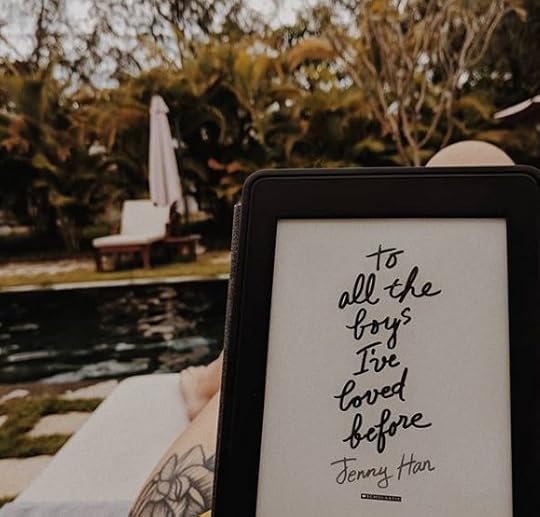 to
all the
boys
I've
loved
before
Jenny Han
SCHOLASTIC